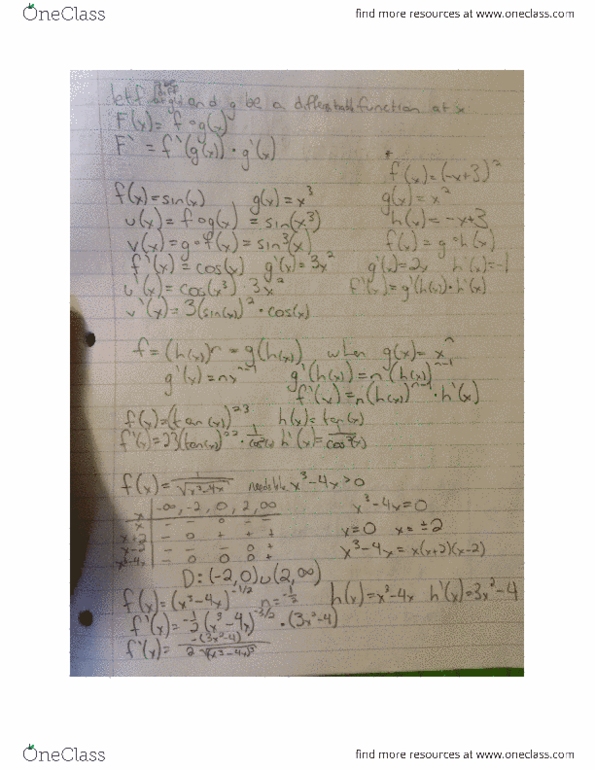 OneClass
find more resources at www.oneclass.com
let f and g be a differentiable function at x
F(x) = f∘g(x)
F` = f`(g(x))·g`(x)
f(x) = (-x+3)²
f(x)=sin(x) g(x)=x³
g(x)=x²
u(x) = f∘g(x) = sin(x³)
h(x)=-x+3
v(x)=g∘f(x) = sin³(x)
f(x) = g∘h(x)
f`(x) = cos(x) g`(x)=3x²
g`(x)=2x h`(x)=-1
u`(x) = cos(x³)·3x²
f`(x)=g`(h(x))·h`(x)
v`(x) = 3(sin(x))²·cos(x)
f=(h(x))ⁿ = g(h(x)) when g(x)=xⁿ
g`(x)=nxⁿ⁻¹ g`(h(x))=n(h(x))ⁿ⁻¹
f`(x)=n(h(x))ⁿ⁻¹·h`(x)
f(x)=(tan(x))²³ h(x)=tan(x)
f`(x)=23(tan(x))²²·1/cos²(x) h`(x)=1/cos²(x)
f(x)=1/√(x³-4x) x³-4x>0
x | -∞, -2, 0, 2, ∞
x³-4x=0
x | - - 0
x=0 x=±2
x+2 | - 0 + + +
x-2 | - - - 0 +
x³-4x=x(x+2)(x-2)
x³-4x | - 0 0 0 +
D: (-2,0)∪(2,∞)
f(x)=(x³-4x)^-1/2 n=-1/2 h(x)=x³-4x h`(x)=3x²-4
f`(x)=-1/2(x³-4x)^-3/2·(3x²-4)
f`(x)=-(3x²-4)/2√(x³-4x)³
OneClass
find more resources at www.oneclass.com